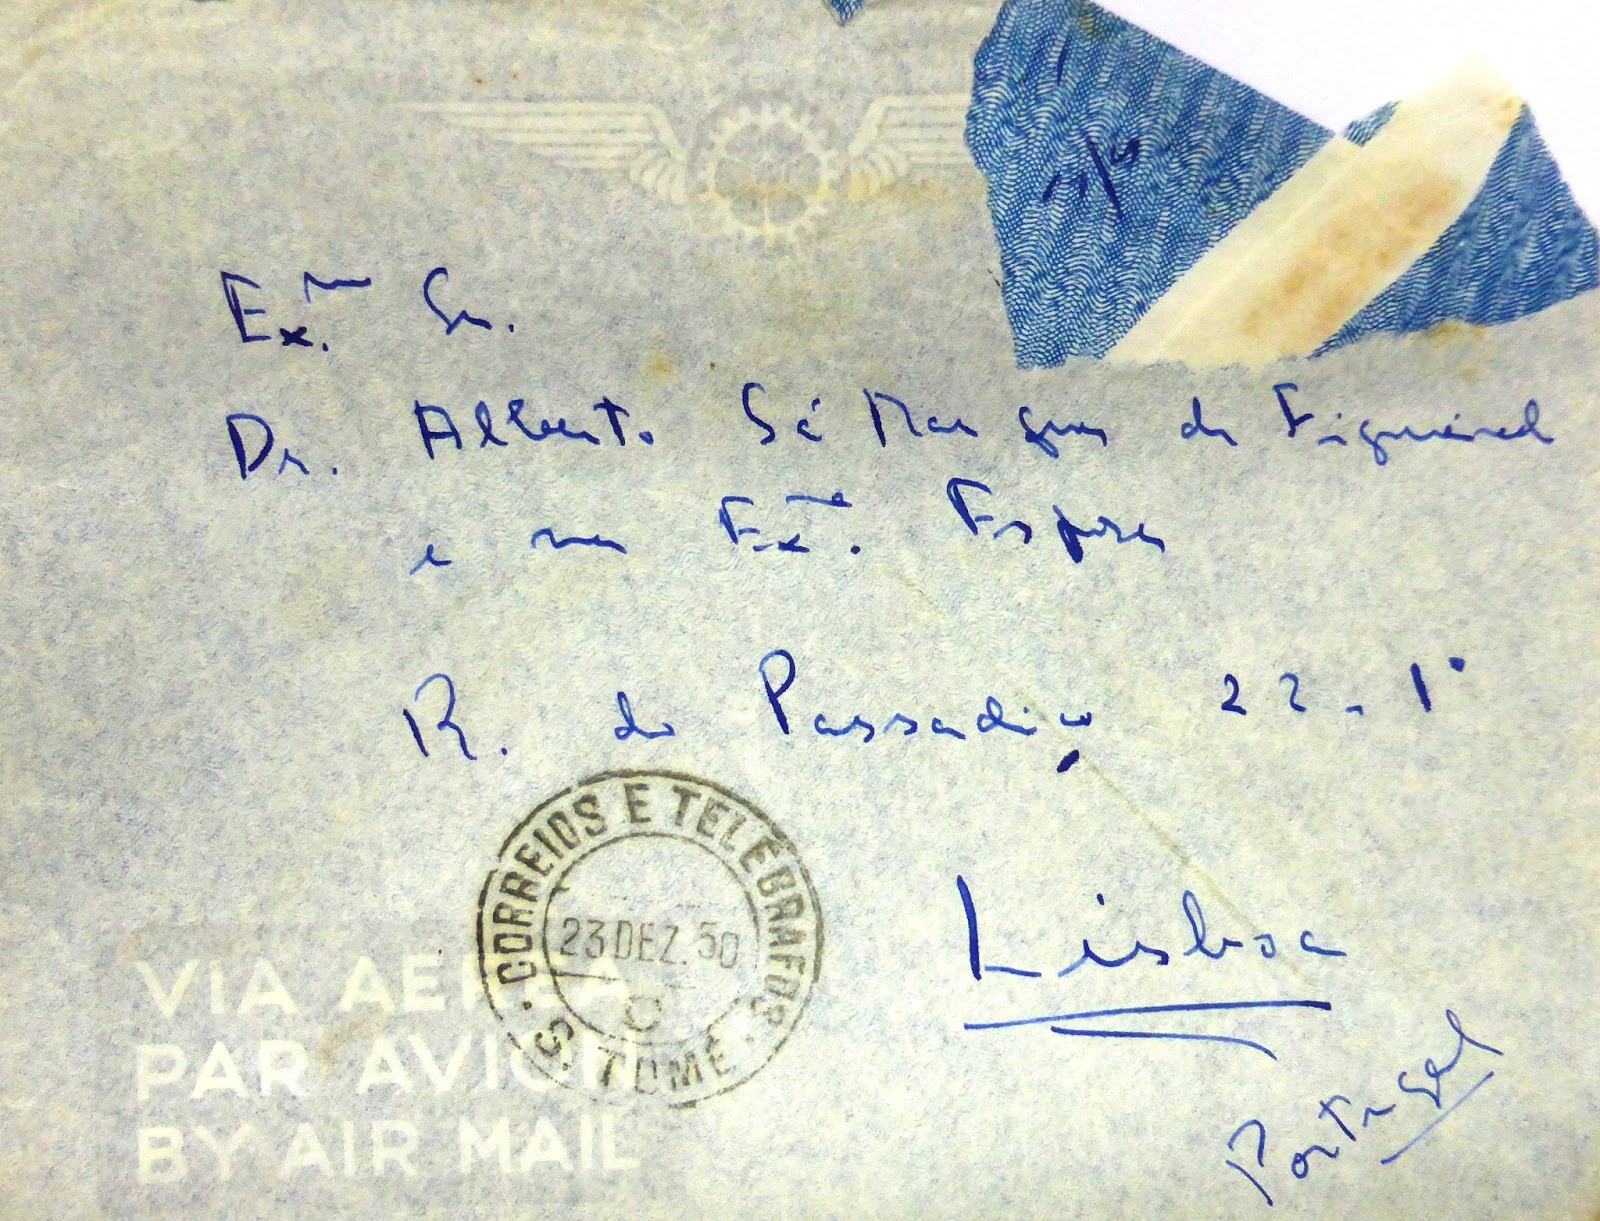 Ex.mo Sr.
Dr. Alberto Sá Marques de Figueiredo
e sua Ex.ma Esposa
R. do Passadiço 22-1º
CORREIOS E TELEGRAFOS
23 DEZ. 50
C
S. TOMÉ
Lisboa
Portugal
VIA AEREA
PAR AVION
BY AIR MAIL